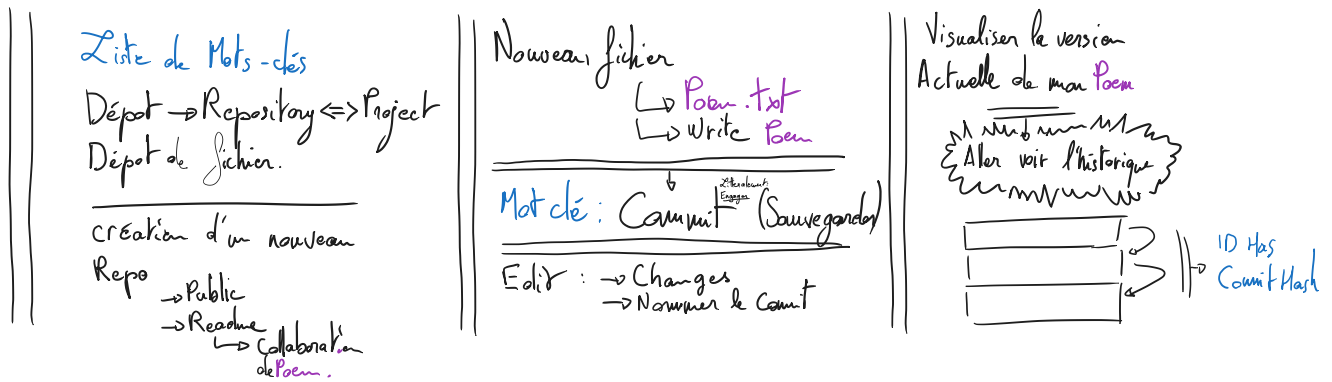 Liste de Mots-clés
Dépot → Repository <=> Project
Dépot de fichier.
création d'un nouveau
Repo
→ Public
→ Readme
→ Collaboration
de Poem.
Nouveau fichier
→ Poem.txt
→ Write Poem
Literalement:
Engager
Mot clé : Commit (Sauvegarder)
Edit : → Changes
→ Nommer le Commit
Visualiser la version
Actuelle de mon Poem
Aller voir l'historique
ID Has
Commit Hash